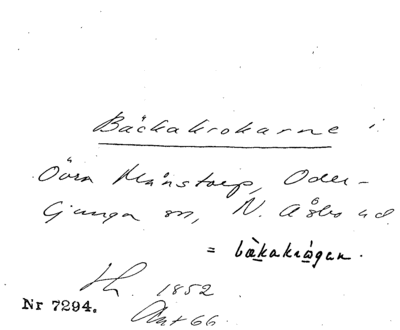 Bäckakrokarne i
Övra Månstorp, Oder-
ljunga sn, N. Åsbo hd.
= bækakrågan.
1852
Nr 7294.